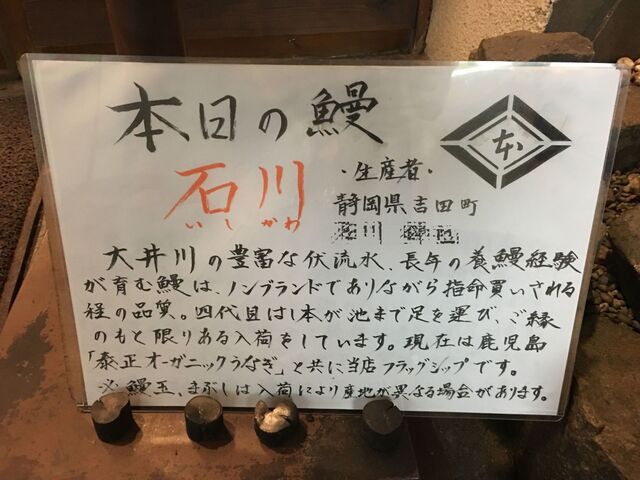 本日の鰻
本
石川
いしかわ
・生産者・
静岡県吉田町
大井川の豊富な伏流水、長年の養鰻経験
が育む鰻は、ノンブランドでありながら指命買いされる
程の品質。四代目はし本が池まで足を運び、ご縁
のもと限りある入荷をしています。現在は鹿児島
「泰正オーガニックうなぎ」と共に当店フラッグシップです。
※鰻玉、まぶしは入荷により産地が異なる場合があります。